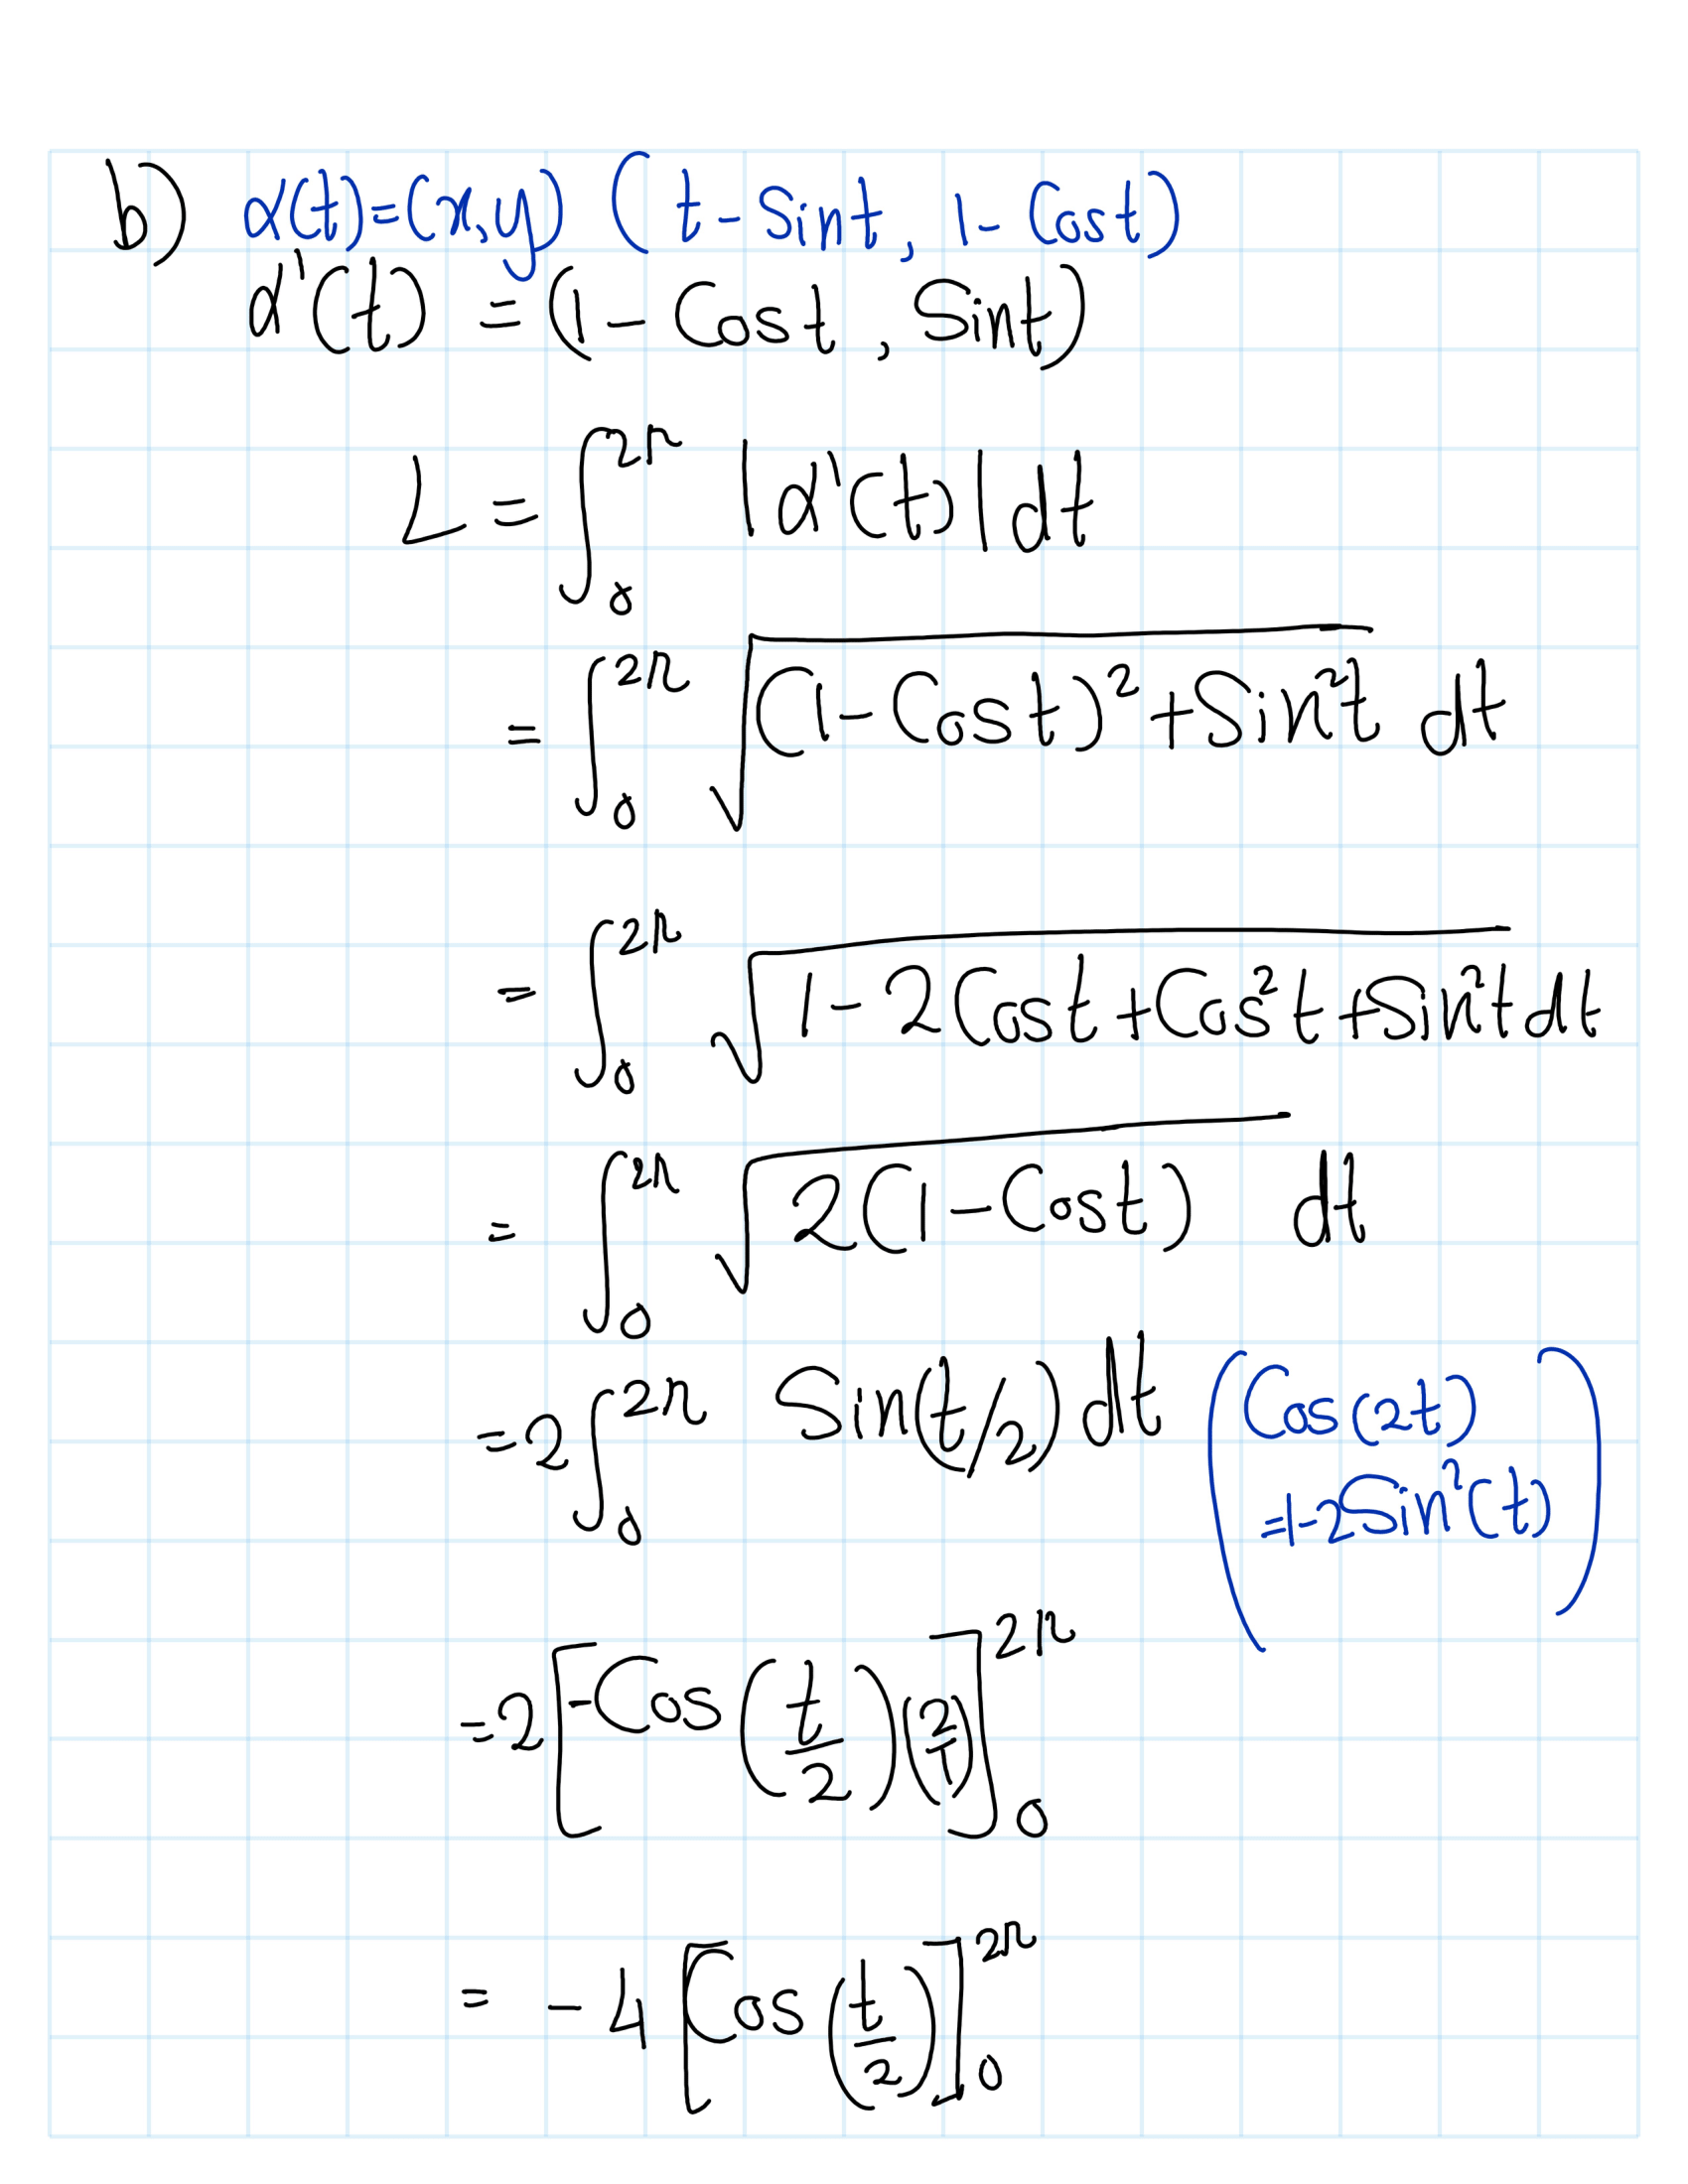 b) α(t)=(x,y) (t-Sint, 1-Cost)
α'(t) =(1-Cost, Sint)
L = ∫₀²π |α'(t)|dt
= ∫₀²π √((1-Cost)²+Sin²t) dt
= ∫₀²π √(1-2Cost+Cos²t+Sin²t) dt
= ∫₀²π √(2(1-Cost)) dt
=2∫₀²π Sin(t/2)dt (Cos(2t)
=1-2Sin²(t))
=2[-Cos(t/2)(2/1)]₀²π
= -4[Cos(t/2)]₀²π